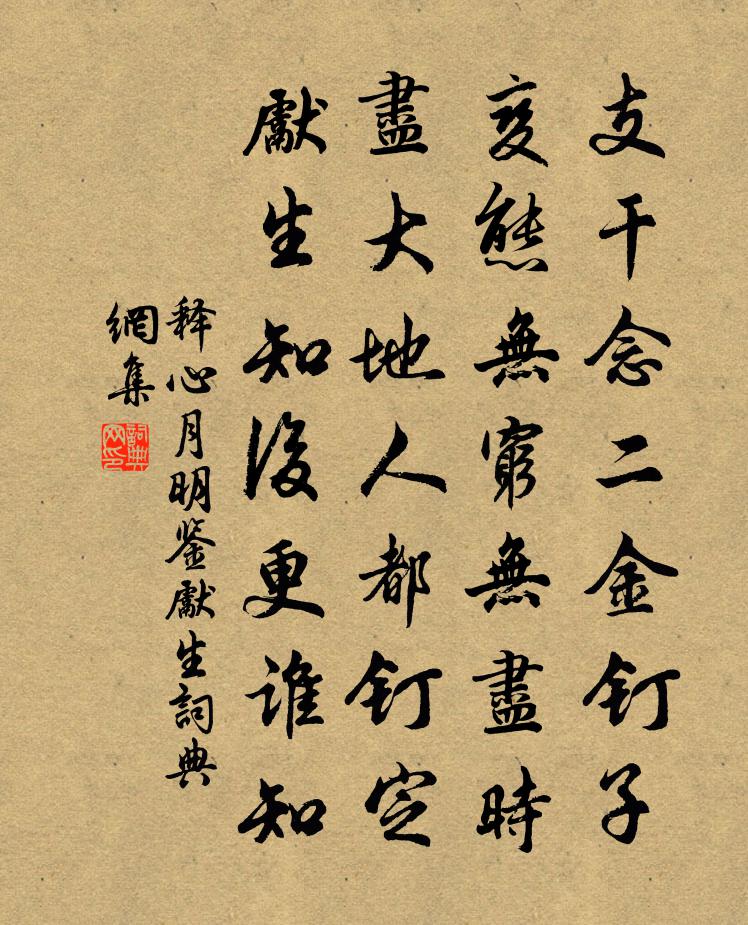 支干念二金钉子
变態無窮無盡時
盡大地人都钉定
獻生知後更誰知
释心月明鉴獻生詞典
網集
詞典
网印